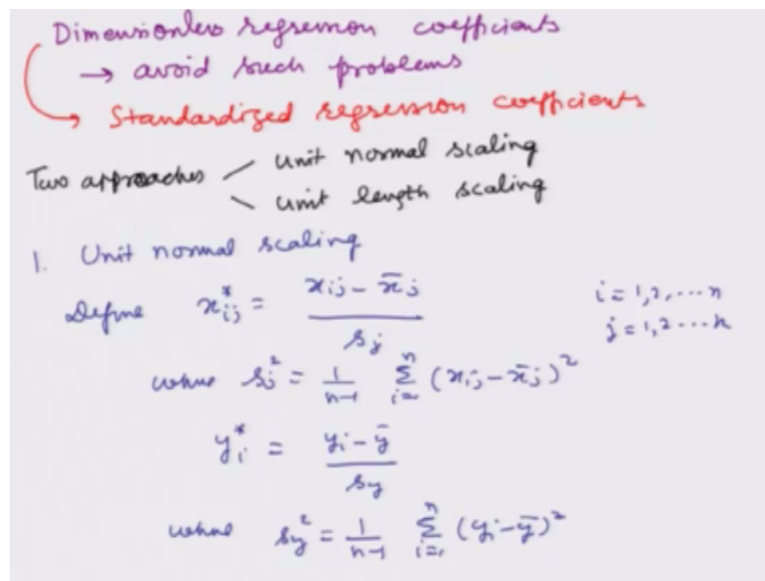 Dimensionless regression coefficients
→ avoid such problems
→ Standardized regression coefficients
Two approaches
unit normal scaling
unit length scaling
1. Unit normal scaling
Define x*ᵢⱼ = (xᵢⱼ - x̄ⱼ) / sⱼ i = 1,2,...n
j = 1,2...k
where sⱼ² = 1/(n-1) Σᵢ₌₁ⁿ (xᵢⱼ - x̄ⱼ)²
y*ᵢ = (yᵢ - ȳ) / s_y
where s_y² = 1/(n-1) Σᵢ₌₁ⁿ (yᵢ - ȳ)²